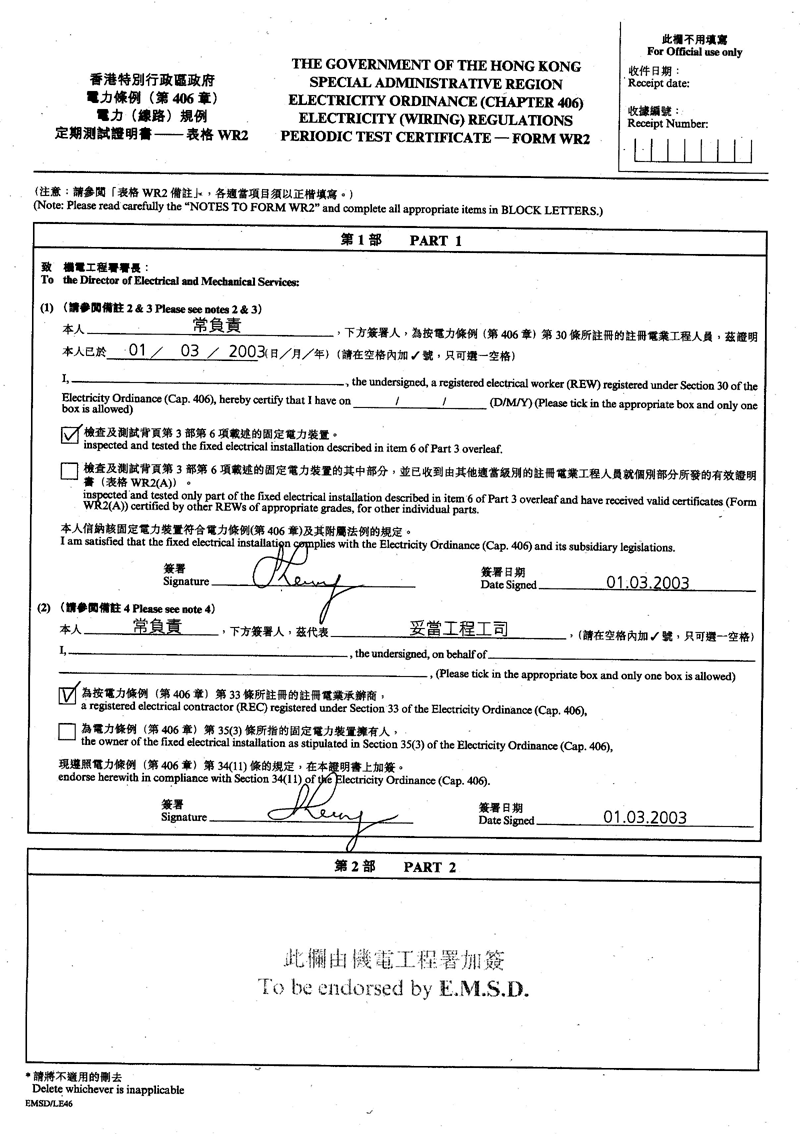 此欄不用填寫
For Official use only
收件日期：
Receipt date:
收據編號：
Receipt Number:
香港特別行政區政府
電力條例（第 406 章）
電力（線路）規例
定期測試證明書 —— 表格 WR2
THE GOVERNMENT OF THE HONG KONG
SPECIAL ADMINISTRATIVE REGION
ELECTRICITY ORDINANCE (CHAPTER 406)
ELECTRICITY (WIRING) REGULATIONS
PERIODIC TEST CERTIFICATE — FORM WR2
（注意：請參閱「表格 WR2 備註」，各適當項目須以正楷填寫。）
(Note: Please read carefully the “NOTES TO FORM WR2” and complete all appropriate items in BLOCK LETTERS.)
第 1 部 PART 1
致 機電工程署署長：
To the Director of Electrical and Mechanical Services:
(1) （請參閱備註 2 & 3 Please see notes 2 & 3）
本人 常負責 ，下方簽署人，為按電力條例（第 406 章）第 30 條所註冊的註冊電業工程人員，茲證明
本人已於 01 / 03 / 2003 （日／月／年）（請在空格內加 ✓ 號，只可選一空格）
I, , the undersigned, a registered electrical worker (REW) registered under Section 30 of the
Electricity Ordinance (Cap. 406), hereby certify that I have on / / (D/M/Y) (Please tick in the appropriate box and only one
box is allowed)
檢查及測試背頁第 3 部第 6 項載述的固定電力裝置。
inspected and tested the fixed electrical installation described in item 6 of Part 3 overleaf.
檢查及測試背頁第 3 部第 6 項載述的固定電力裝置的其中部分，並已收到由其他適當級別的註冊電業工程人員就個別部分所發的有效證明
書（表格 WR2(A)）。
inspected and tested only part of the fixed electrical installation described in item 6 of Part 3 overleaf and have received valid certificates (Form
WR2(A)) certified by other REWs of appropriate grades, for other individual parts.
本人信納該固定電力裝置符合電力條例(第 406 章)及其附屬法例的規定。
I am satisfied that the fixed electrical installation complies with the Electricity Ordinance (Cap. 406) and its subsidiary legislations.
簽署 簽署日期
Signature Date Signed 01.03.2003
(2) （請參閱備註 4 Please see note 4）
本人 常負責 ，下方簽署人，茲代表 妥當工程工司 ，（請在空格內加 ✓ 號，只可選一空格）
I, , the undersigned, on behalf of
, (Please tick in the appropriate box and only one box is allowed)
為按電力條例（第 406 章）第 33 條所註冊的註冊電業承辦商，
a registered electrical contractor (REC) registered under Section 33 of the Electricity Ordinance (Cap. 406),
為電力條例（第 406 章）第 35(3) 條所指的固定電力裝置擁有人，
the owner of the fixed electrical installation as stipulated in Section 35(3) of the Electricity Ordinance (Cap. 406),
現遵照電力條例（第 406 章）第 34(11) 條的規定，在本證明書上加簽。
endorse herewith in compliance with Section 34(11) of the Electricity Ordinance (Cap. 406).
簽署 簽署日期
Signature Date Signed 01.03.2003
第 2 部 PART 2
此欄由機電工程署加簽
To be endorsed by E.M.S.D.
* 請將不適用的刪去
Delete whichever is inapplicable
EMSD/LE46